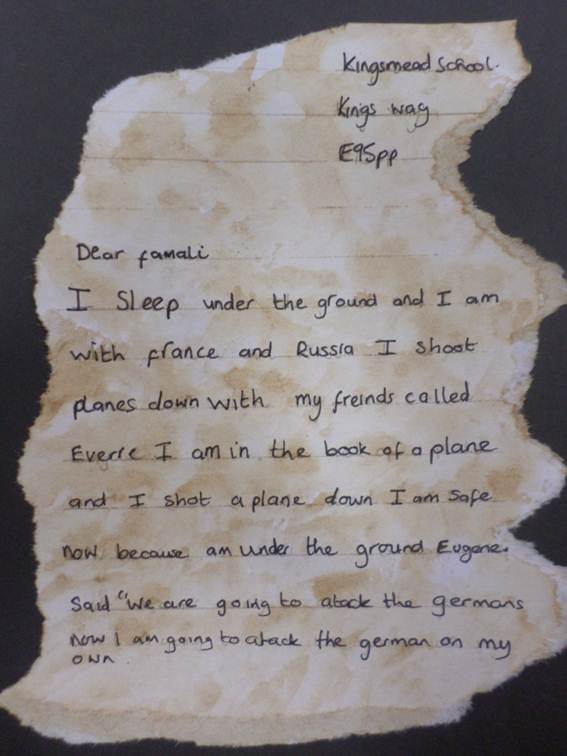 Kingsmead School.
Kings way
E95pp
Dear famali
I Sleep under the ground and I am
with france and Russia I shoot
planes down with my freinds called
Everre I am in the book of a plane
and I shot a plane down I am safe
now because am under the ground Eugene.
Said "We are going to atack the germans
now I am going to atack the german on my
own.